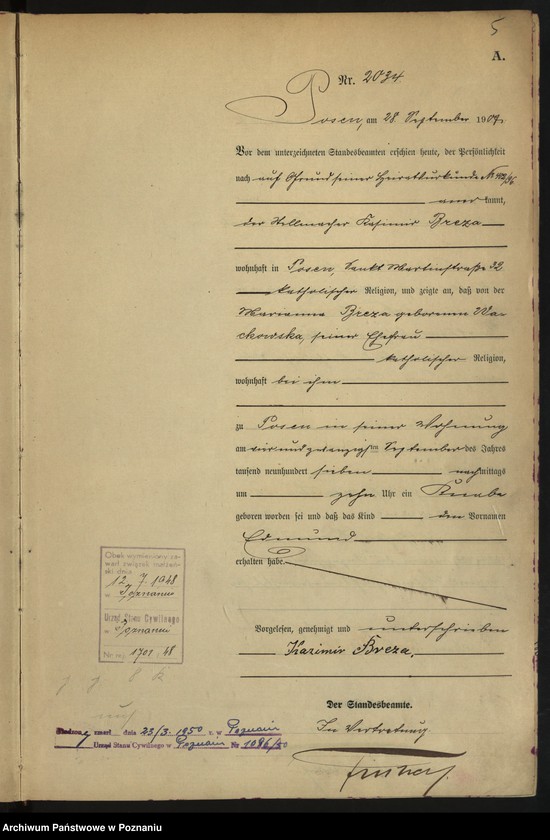 5
A.
Nr. 2034
Posen, am 28. September 1907.
Vor dem unterzeichneten Standesbeamten erschien heute, der Persönlichkeit
nach auf Grund seiner Heiratsurkunde
anerkannt,
der Stellmacher Kasimir Breza
wohnhaft in Posen, Sankt Martinstraße 32
katholischer Religion, und zeigte an, daß von der
Marianna Breza geborenen Wa-
ckowska, seiner Ehefrau
katholischer Religion,
wohnhaft bei ihm
zu Posen in seiner Wohnung
am vierundzwanzigsten September des Jahres
tausend neunhundert sieben nachmittags
um zehn Uhr ein Knabe
geboren worden sei und daß das Kind den Vornamen
Edmund
erhalten habe.
Obok wymieniony za-
warł związek małżeń-
ski dnia
12. 7. 1948
w Poznaniu
Urząd Stanu Cywilnego
w Poznaniu
Nr. rej. 1701/48
Vorgelesen, genehmigt und unterschrieben
Kazimir Breza.
Der Standesbeamte.
In Vertretung
zmarł dnia 23/3. 1950 r. w Poznaniu
Urząd Stanu Cywilnego w Poznaniu Nr 1086/50
Archiwum Państwowe w Poznaniu